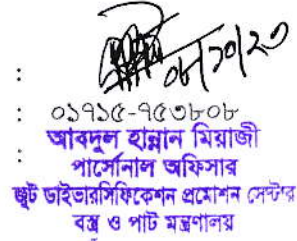 : ০৮/১০/২৩
: ০১৭১৫-৭৫৩৮০৮
: আবদুল হান্নান মিয়াজী
পার্সোনাল অফিসার
জুট ডাইভারসিফিকেশন প্রমোশন সেন্টার
বস্ত্র ও পাট মন্ত্রণালয়